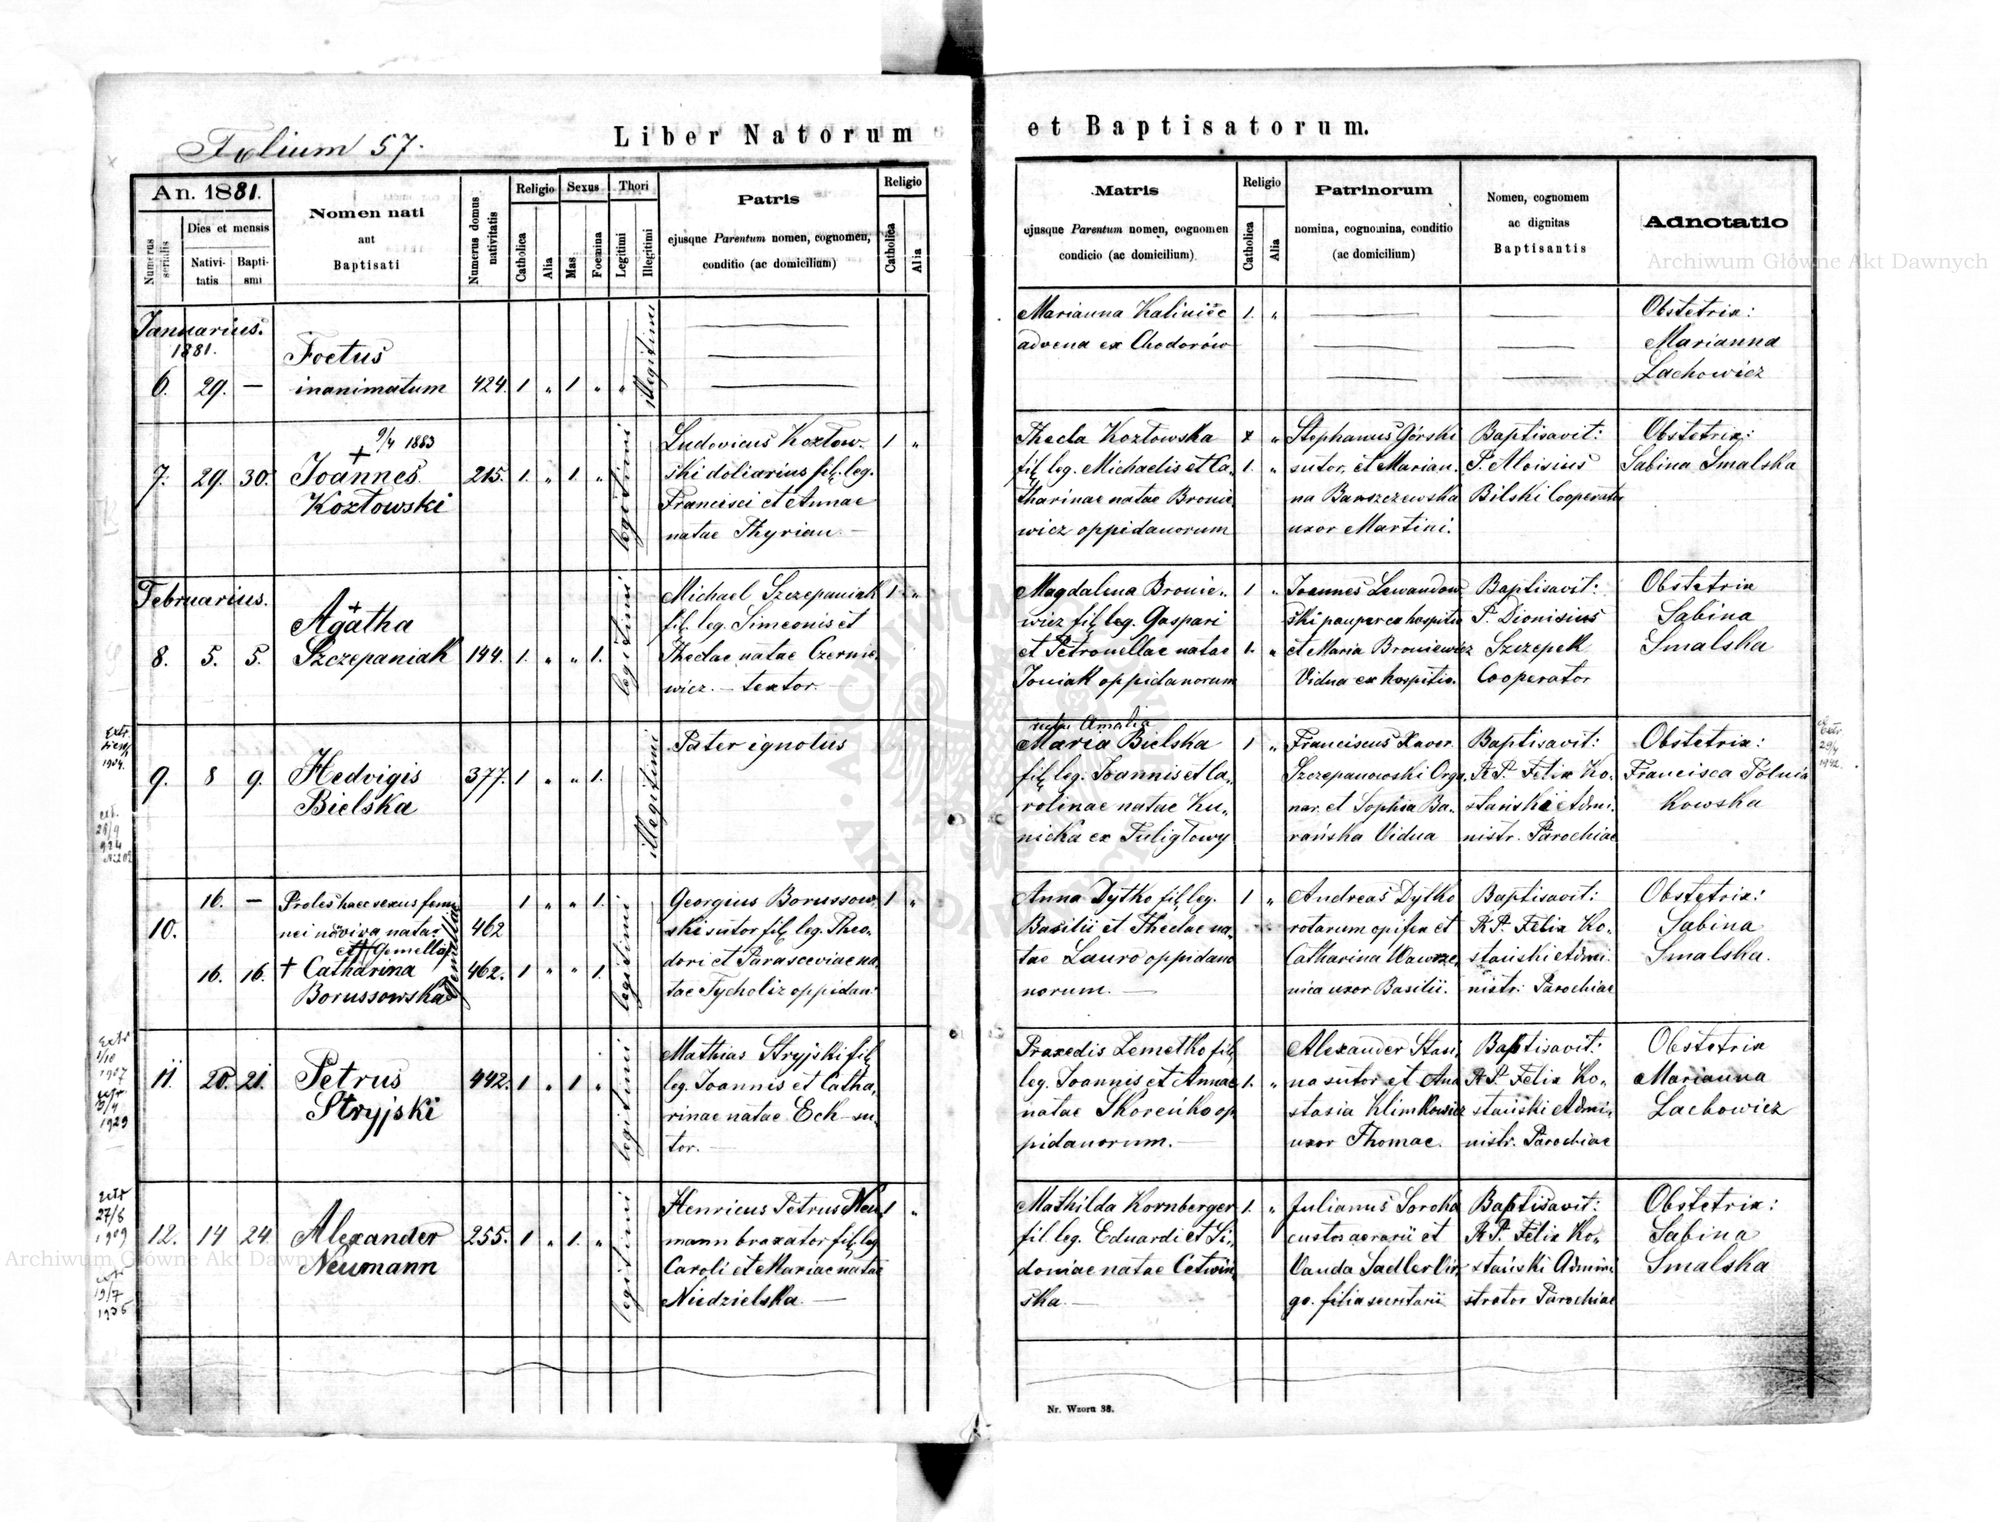 Folium 57.
Liber Natorum et Baptisatorum.
An. 1881.
Numerus serialis
Dies et mensis
Nativi-
tatis
Bapti-
smi
Nomen nati
aut
Baptisati
Numerus domus
nativitatis
Religio
Catholica
Alia
Sexus
Mas.
Foemina
Thori
Legitimi
Illegitimi
Patris
ejusque Parentum nomen, cognomen,
conditio (ac domicilium)
Religio
Catholica
Alia
Matris
ejusque Parentum nomen, cognomen
condicio (ac domicilium)
Religio
Catholica
Alia
Patrinorum
nomina, cognomina, conditio
(ac domicilium)
Nomen, cognomem
ac dignitas
Baptisantis
Adnotatio
Archiwum Główne Akt Dawnych
Januarius.
1881.
6. 29. —
Foetus
inanimatum
424. 1 " 1 " "
illegitimi
Marianna Kaliniec
advena ex Chodorów
1. "
Obstetrix:
Marianna
Lachowicz
7. 29. 30.
+ 9/4 1883
Joannes
Kozłowski
215. 1. " 1. "
legitimi
Ludovicus Kozłow-
ski doliarius fil. leg.
Francisci et Annae
natae Thyrian. —
1 "
Thecla Kozłowska
fil. leg. Michaelis et Ca-
tharinae natae Bronie-
wicz oppidanorum
1. "
Stephanus Górski
sutor, et Marian-
na Barszczewska
uxor Martini.
Baptisavit:
P. Aloisius
Bilski Cooperator
Obstetrix:
Sabina Smalska
Februarius.
8. 5. 5.
+
Agatha
Szczepaniak
144. 1. " " 1.
legitimi
Michael Szczepaniak
fil. leg. Simeonis et
Theclae natae Czernie-
wicz. — textor.
1. "
Magdalena Bronie-
wicz fil. leg. Gaspari
et Petronellae natae
Joniak oppidanorum
1 "
1. "
Joannes Lewandow-
ski pauper ex hospitio
et Maria Broniewicz
Vidua ex hospitio.
Baptisavit:
P. Dionisius
Szczepek
Cooperator
Obstetrix
Sabina
Smalska
Extr.
1904.
9. 8 9.
Hedvigis
Bielska
377. 1 " " 1.
illegitimi
Pater ignotus
Amalia
Maria Bielska
fil. leg. Joannis et Ca-
rolinae natae Ku-
nicka ex Tuligłowy
1 "
Franciscus Xaver
Szczepanowski Orga-
nar. et Sophia Ba-
rańska Vidua
Baptisavit:
R. P. Felix Ko-
stański Admi-
nistr. Parochiae
Obstetrix:
Francisca Pólnia-
kowska
10.
16. —
Proles haec sexus femi-
nei
Gemella
16. 16.
+ Catharina
Borussowska
Gemellae
462
462.
1 " " 1.
1 " " 1.
legitimi
Georgius Borussow-
ski sutor fil. leg. Theo-
dori et Parasceviae na-
tae Tycholiz oppidan.
1 "
Anna Dytko fil. leg.
Basilii et Theclae na-
tae Lauro oppida-
norum. —
1 "
Andreas Dytko
rotarum opifex et
Catharina Wawrze-
nica uxor Basilii.
Baptisavit:
R. P. Felix Ko-
stański Admi-
nistr. Parochiae
Obstetrix:
Sabina
Smalska.
Extr
1/10
1907
3/4
1929
11. 20. 21.
Petrus
Stryjski
442. 1 " 1 "
legitimi
Mathias Stryjski fil.
leg. Joannis et Catha-
rinae natae Eck — su-
tor. —
Praxedis Lemetko fil.
leg. Joannis et Annae
natae Skoreńko op-
pidanorum. —
1. "
Alexander Stasi-
na sutor et Ana-
stasia Klimkowicz
uxor Thomae.
Baptisavit:
R. P. Felix Ko-
stański Admi-
nistr. Parochiae
Obstetrix
Marianna
Lachowicz
extr
27/8
1909
extr
19/7
12. 14 24.
Alexander
Neumann
255. 1 " 1. "
legitimi
Henricus Petrus Neu-
mann braxator fil. leg.
Caroli et Mariae natae
Niedzielska. —
1 "
Mathilda Kornberger
fil. leg. Eduardi et Si-
doniae natae Cetwiń-
ska. —
1. "
Julianus Soroka
custos aerarii et
Vanda Sadler Vir-
go. filia secretarii
Baptisavit:
R. P. Felix Ko-
stański Admini-
strator Parochiae
Obstetrix:
Sabina
Smalska
Archiwum Główne Akt Dawnych
Nr. Wzoru 38.